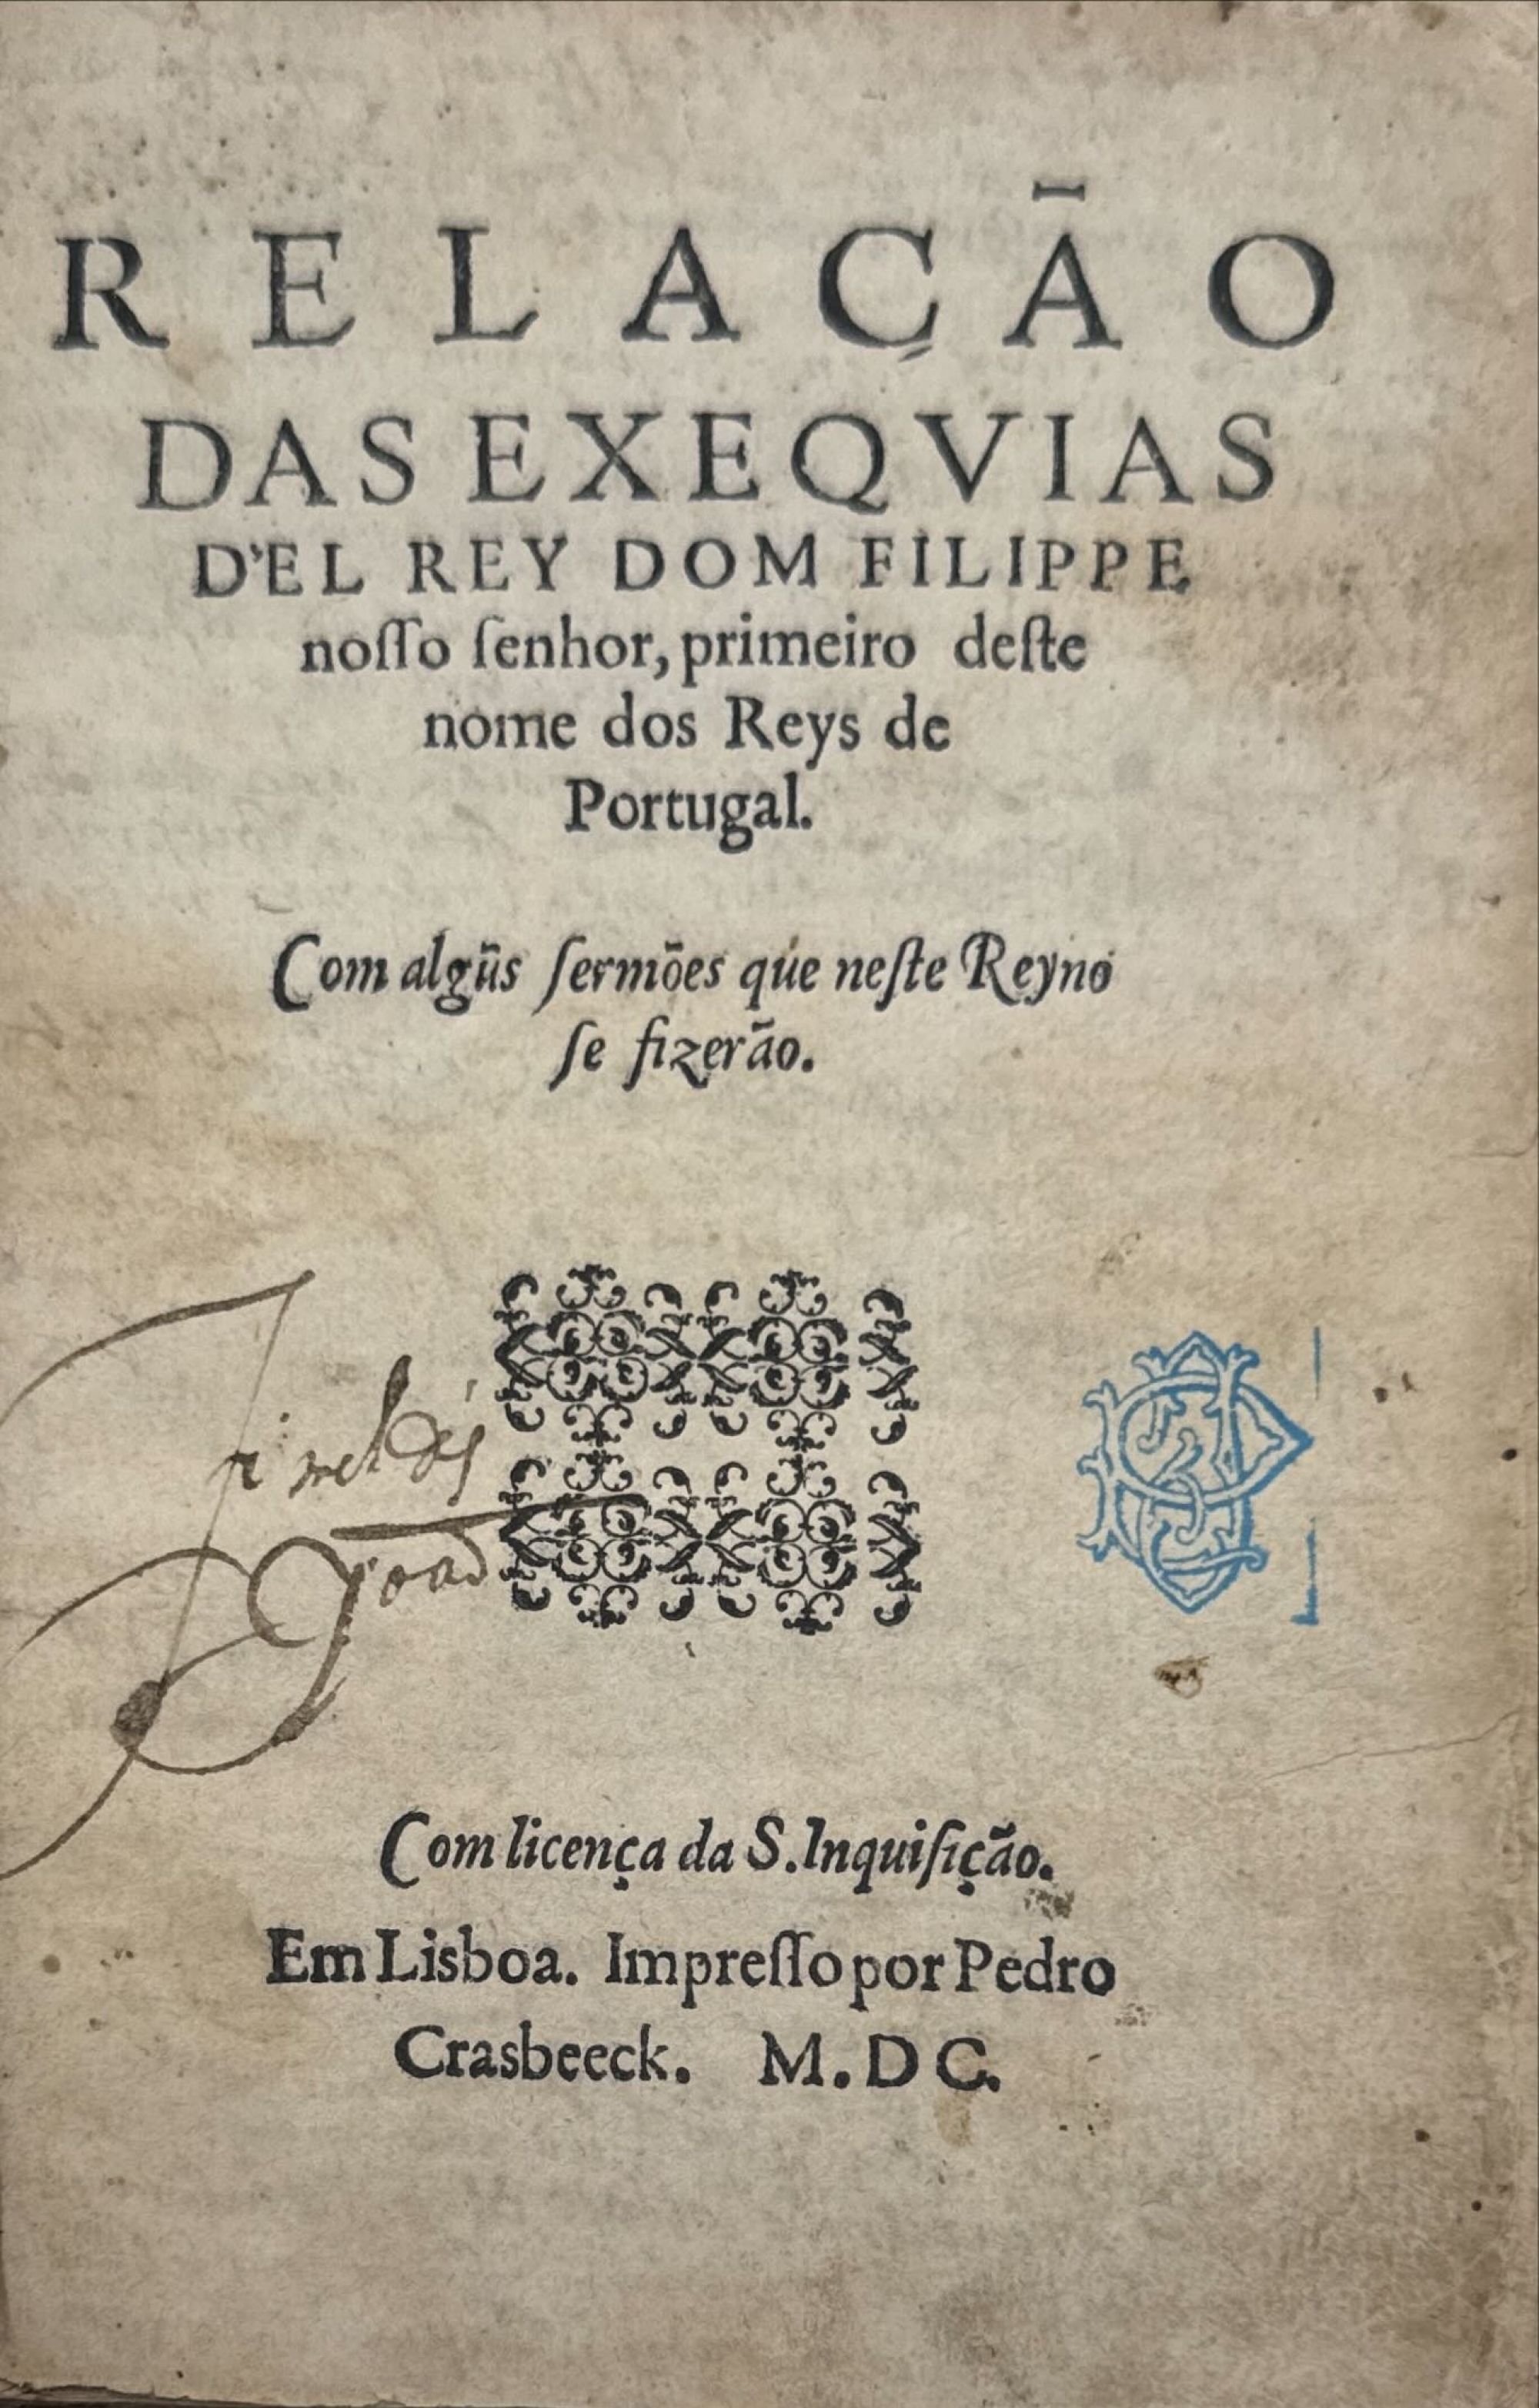 RELAÇÃO
DAS EXEQVIAS
D'EL REY DOM FILIPPE
noſſo ſenhor, primeiro deſte
nome dos Reys de
Portugal.
Com algũs ſermões que neſte Reyno
ſe fizerão.
Com licença da S. Inquiſição.
Em Lisboa. Impreſſo por Pedro
Crasbeeck. M.DC.